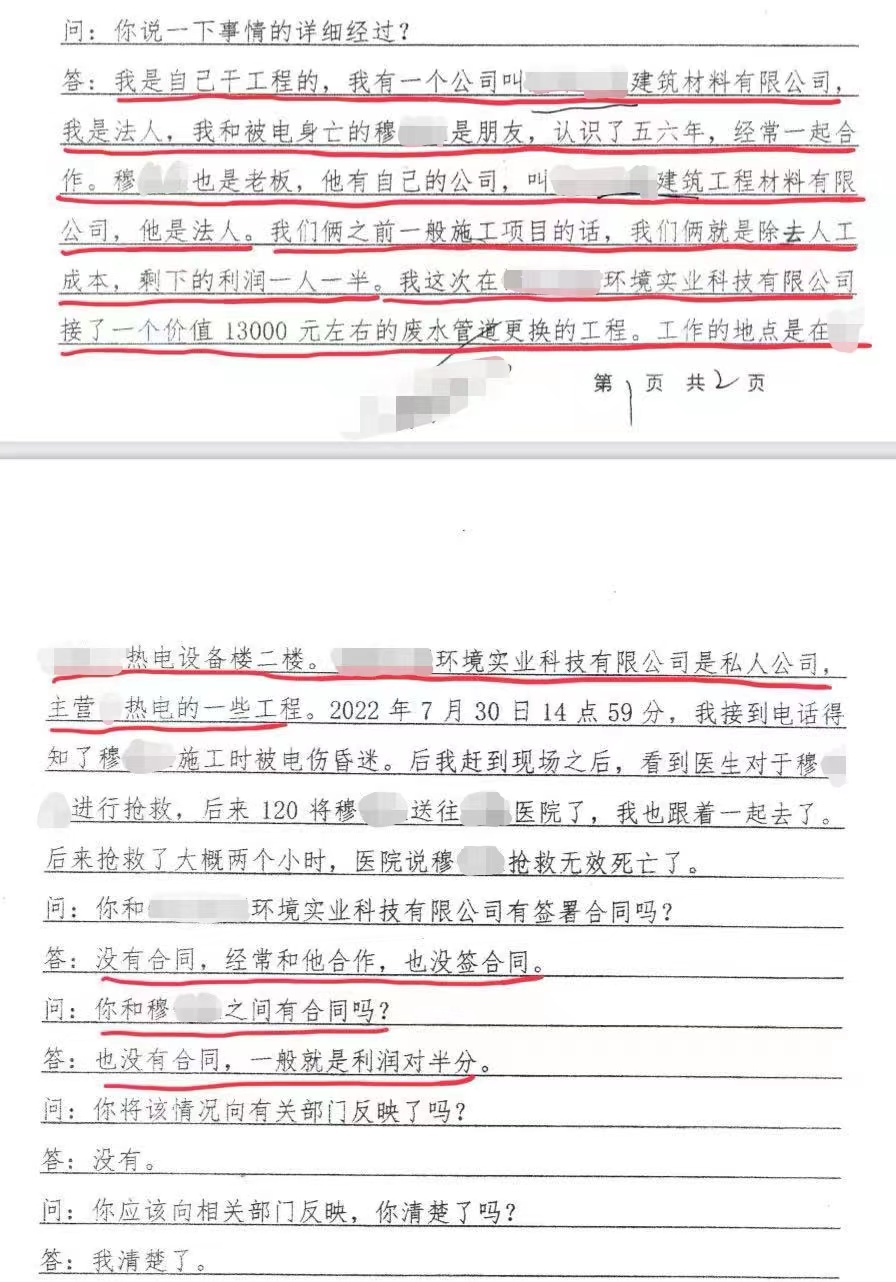 问：你说一下事情的详细经过？
答：我是自己干工程的，我有一个公司叫建筑材料有限公司，
我是法人，我和被电身亡的穆是朋友，认识了五六年，经常一起合
作。穆也是老板，他有自己的公司，叫建筑工程材料有限
公司，他是法人。我们俩之前一般施工项目的话，我们俩就是除去人工
成本，剩下的利润一人一半。我这次在环境实业科技有限公司
接了一个价值 13000 元左右的废水管道更换的工程。工作的地点是在
第 1 页 共 2 页
热电设备楼二楼。环境实业科技有限公司是私人公司，
主营热电的一些工程。2022 年 7 月 30 日 14 点 59 分，我接到电话得
知了穆施工时被电伤昏迷。后我赶到现场之后，看到医生对于穆
进行抢救，后来 120 将穆送往医院了，我也跟着一起去了。
后来抢救了大概两个小时，医院说穆抢救无效死亡了。
问：你和环境实业科技有限公司有签署合同吗？
答：没有合同，经常和他合作，也没签合同。
问：你和穆之间有合同吗？
答：也没有合同，一般就是利润对半分。
问：你将该情况向有关部门反映了吗？
答：没有。
问：你应该向相关部门反映，你清楚了吗？
答：我清楚了。